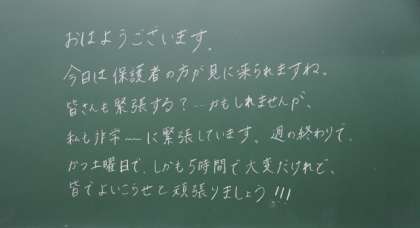 おはようございます。
今日は保護者の方が見に来られますね。
皆さんも緊張する？‥かもしれませんが、
私も非常〜に緊張しています。週の終わりで、
かつ土曜日で、しかも5時間で大変だけれど、
皆でよいこらせと頑張りましょう!!!